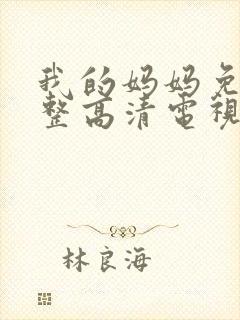 我的妈妈免
整高清電視
林良海